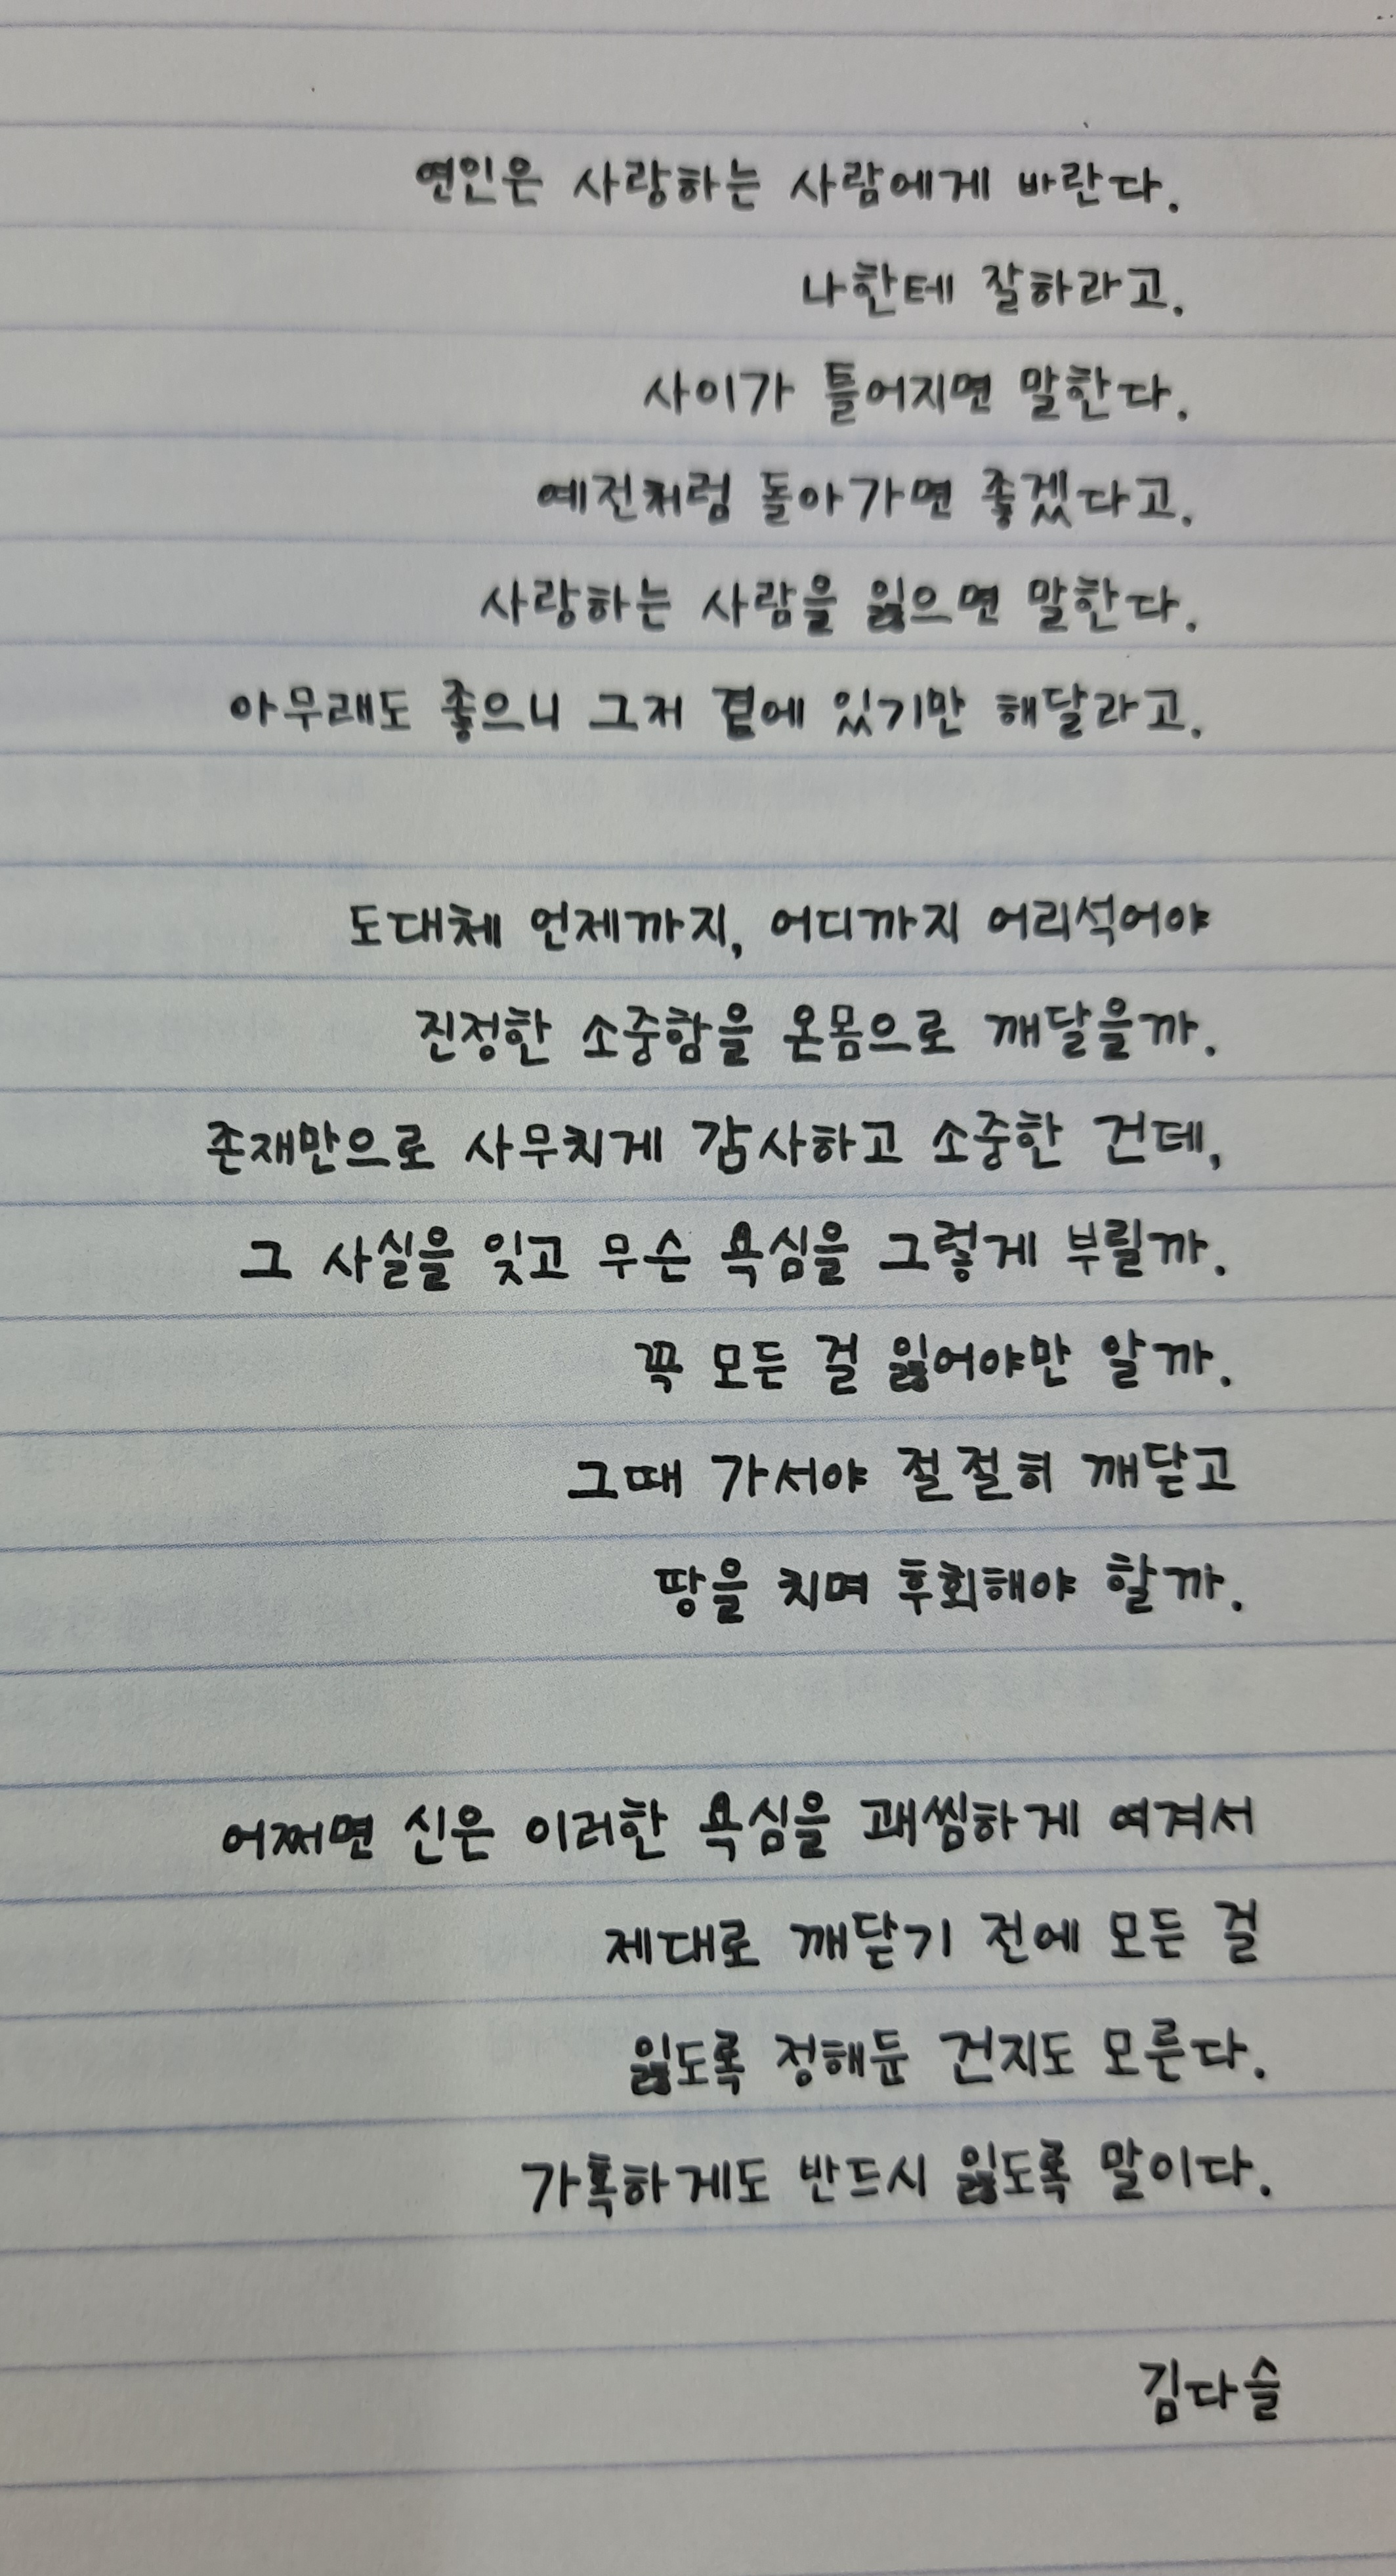 연인은 사랑하는 사람에게 바란다.
나한테 잘하라고.
사이가 틀어지면 말한다.
예전처럼 돌아가면 좋겠다고.
사랑하는 사람을 잃으면 말한다.
아무래도 좋으니 그저 곁에 있기만 해달라고.
도대체 언제까지, 어디까지 어리석어야
진정한 소중함을 온몸으로 깨달을까.
존재만으로 사무치게 감사하고 소중한 건데,
그 사실을 잊고 무슨 욕심을 그렇게 부릴까.
꼭 모든 걸 잃어야만 알까.
그때 가서야 절절히 깨닫고
땅을 치며 후회해야 할까.
어쩌면 신은 이러한 욕심을 괘씸하게 여겨서
제대로 깨닫기 전에 모든 걸
잃도록 정해둔 건지도 모른다.
가혹하게도 반드시 잃도록 말이다.
김다슬